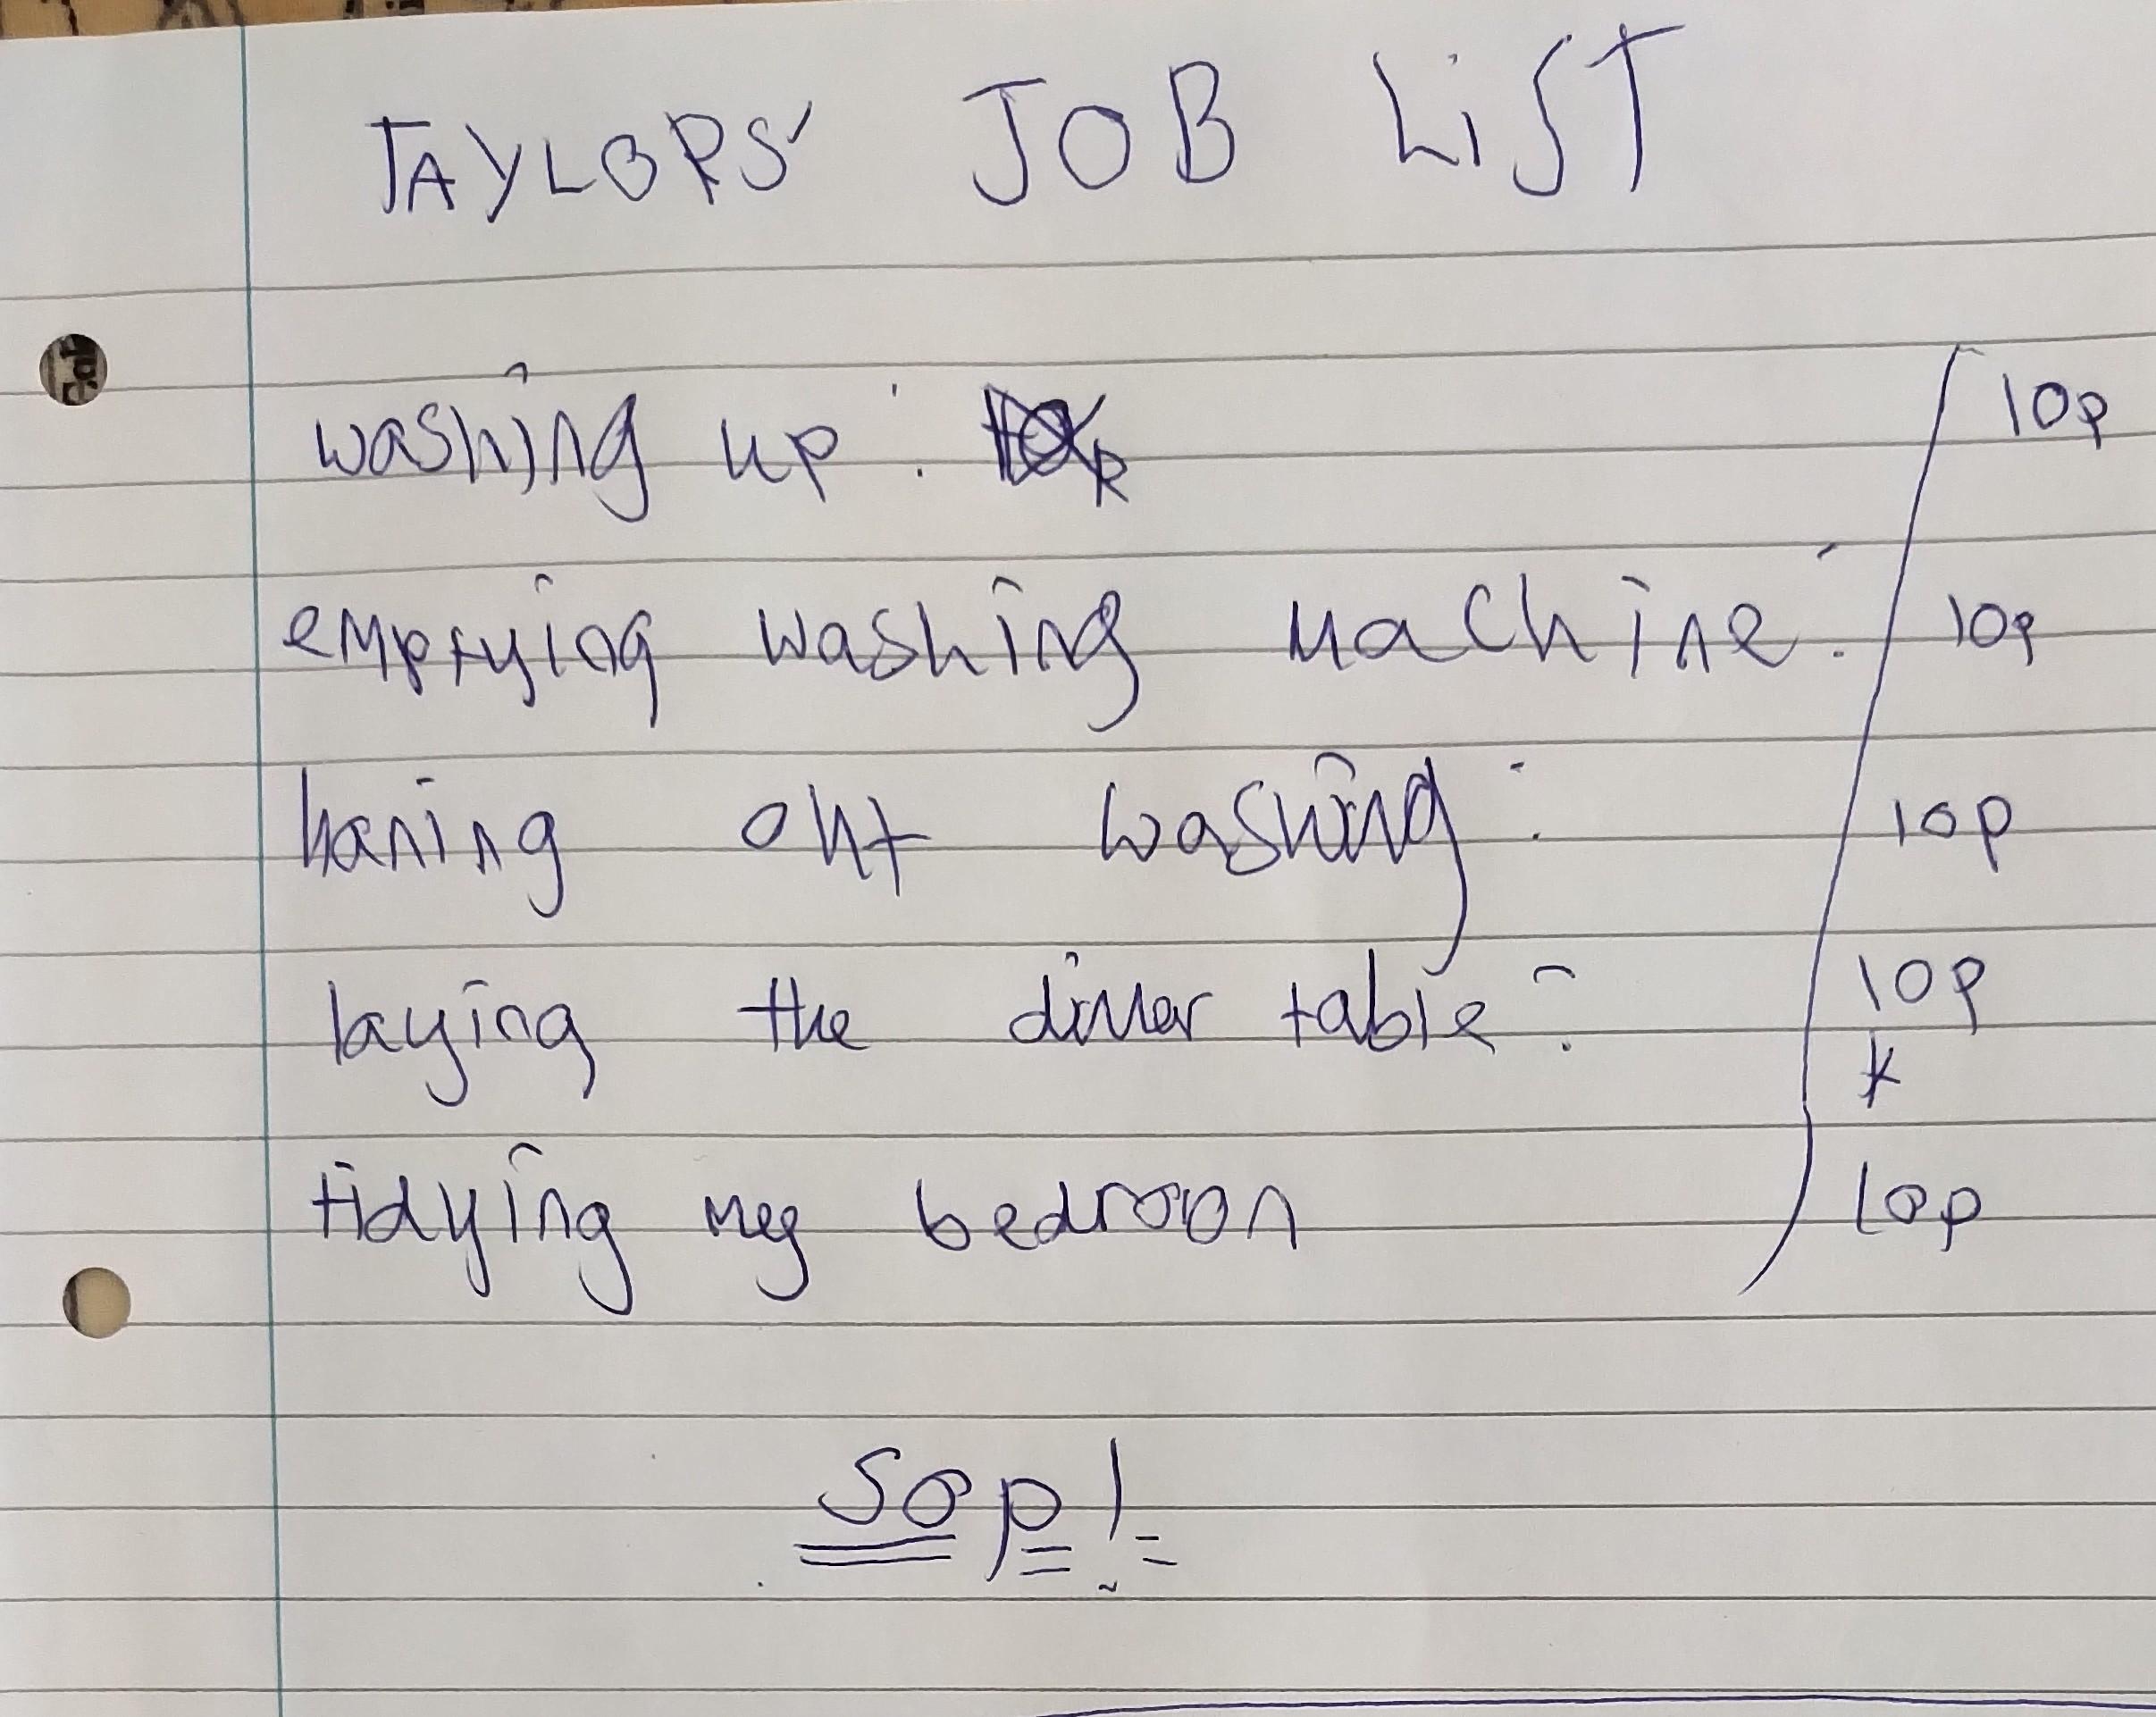 TAYLORS' JOB LiST
washing up : 10p
emptying washing machine : 10p
haning out washing : 10p
laying the dinner table : 10p
*
tidying my bedroom 10p
50p!